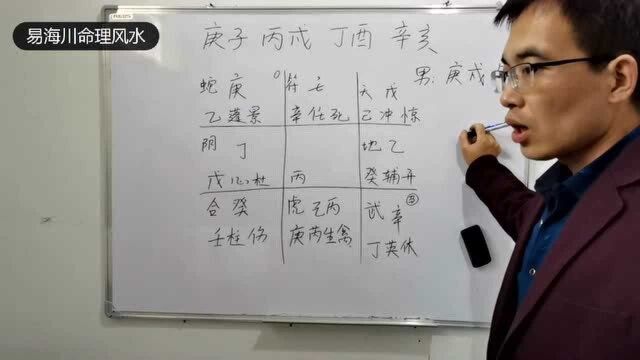 易海川命理风水
庚子 丙戌 丁酉 辛亥
男:庚戌
蛇 庚 符 天 戊
乙蓬景 辛任死 己冲惊
阴 丁 地 乙
戊心杜 丙 癸辅开
合 癸 虎 丙 武 辛
壬柱伤 庚芮生禽 丁英休